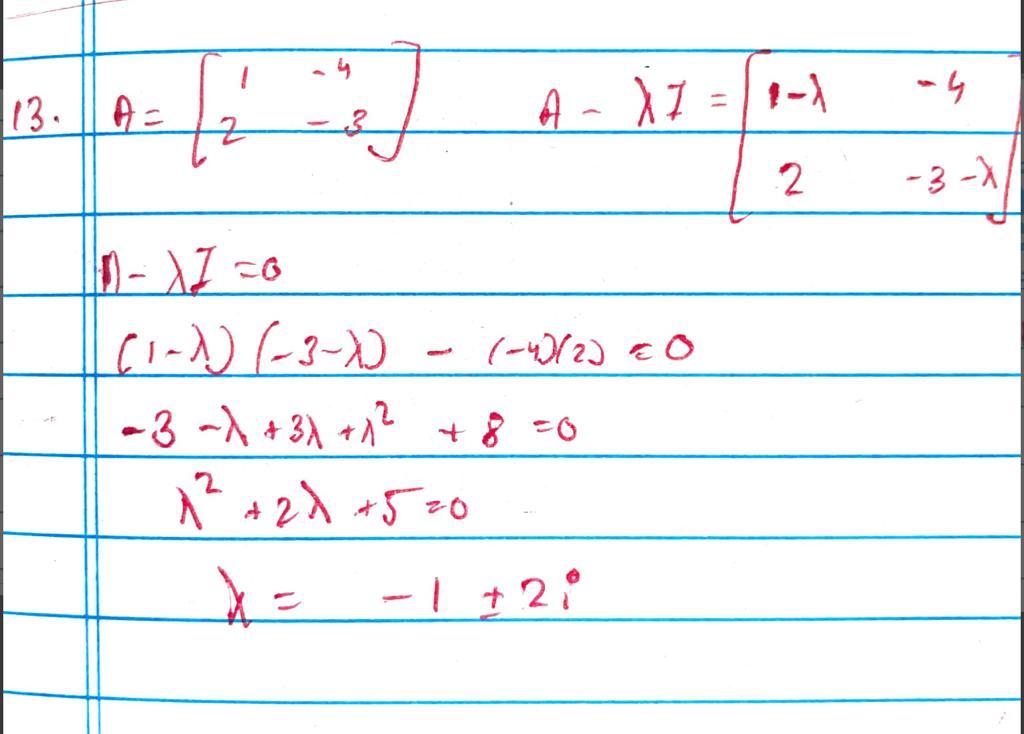 13. A = [1 -4; 2 -3] A - λI = [1-λ -4; 2 -3-λ]
A - λI = 0
(1-λ)(-3-λ) - (-4)(2) = 0
-3 -λ + 3λ + λ² + 8 = 0
λ² + 2λ + 5 = 0
λ = -1 ± 2i